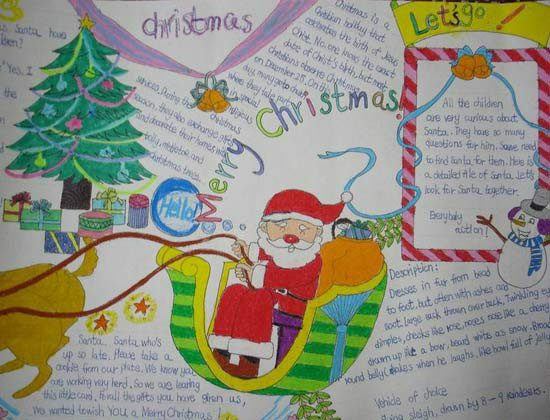 christmas
Let's go !
Christmas is a
Christian holiday that
celebrates the birth of Jesus
Christ. No one knows the exact
date of Christ's birth, but most
Christians observe Christmas
on December 25. On this
day, many people
in special
religious
where they take part
services. During the Christmas
season, they also exchange gifts
and decorate their homes with
holly, mistletoe and
christmas trees.
as Santa have
children?
"Yes, I
Merry Christmas!
Hello!
All the children
are very curious about
Santa. They have so many
questions for him. Some need
to find santa for them. Here is
a detailed file of Santa. Let's
look for Santa together.
Everybody
action!
Description:
Dresses in fur from head
to foot, but often with ashes and
soot. Large sack thrown over back. Twinkling
dimples, cheeks like rose, noses like a cherry
drawn up like a bow, beard white as snow.
round belly shakes when he laughs, like bowl full of jelly
Vehide of choice
flying sleigh, drawn by 8-9 reindeers.
Santa, Santa who's
up so late, Please take a
cookie from our plate. We know you
are working very herd, So we are learing
this little card, For all the gifts you have given us,
We wanted to wish YOU a Merry Christmas!